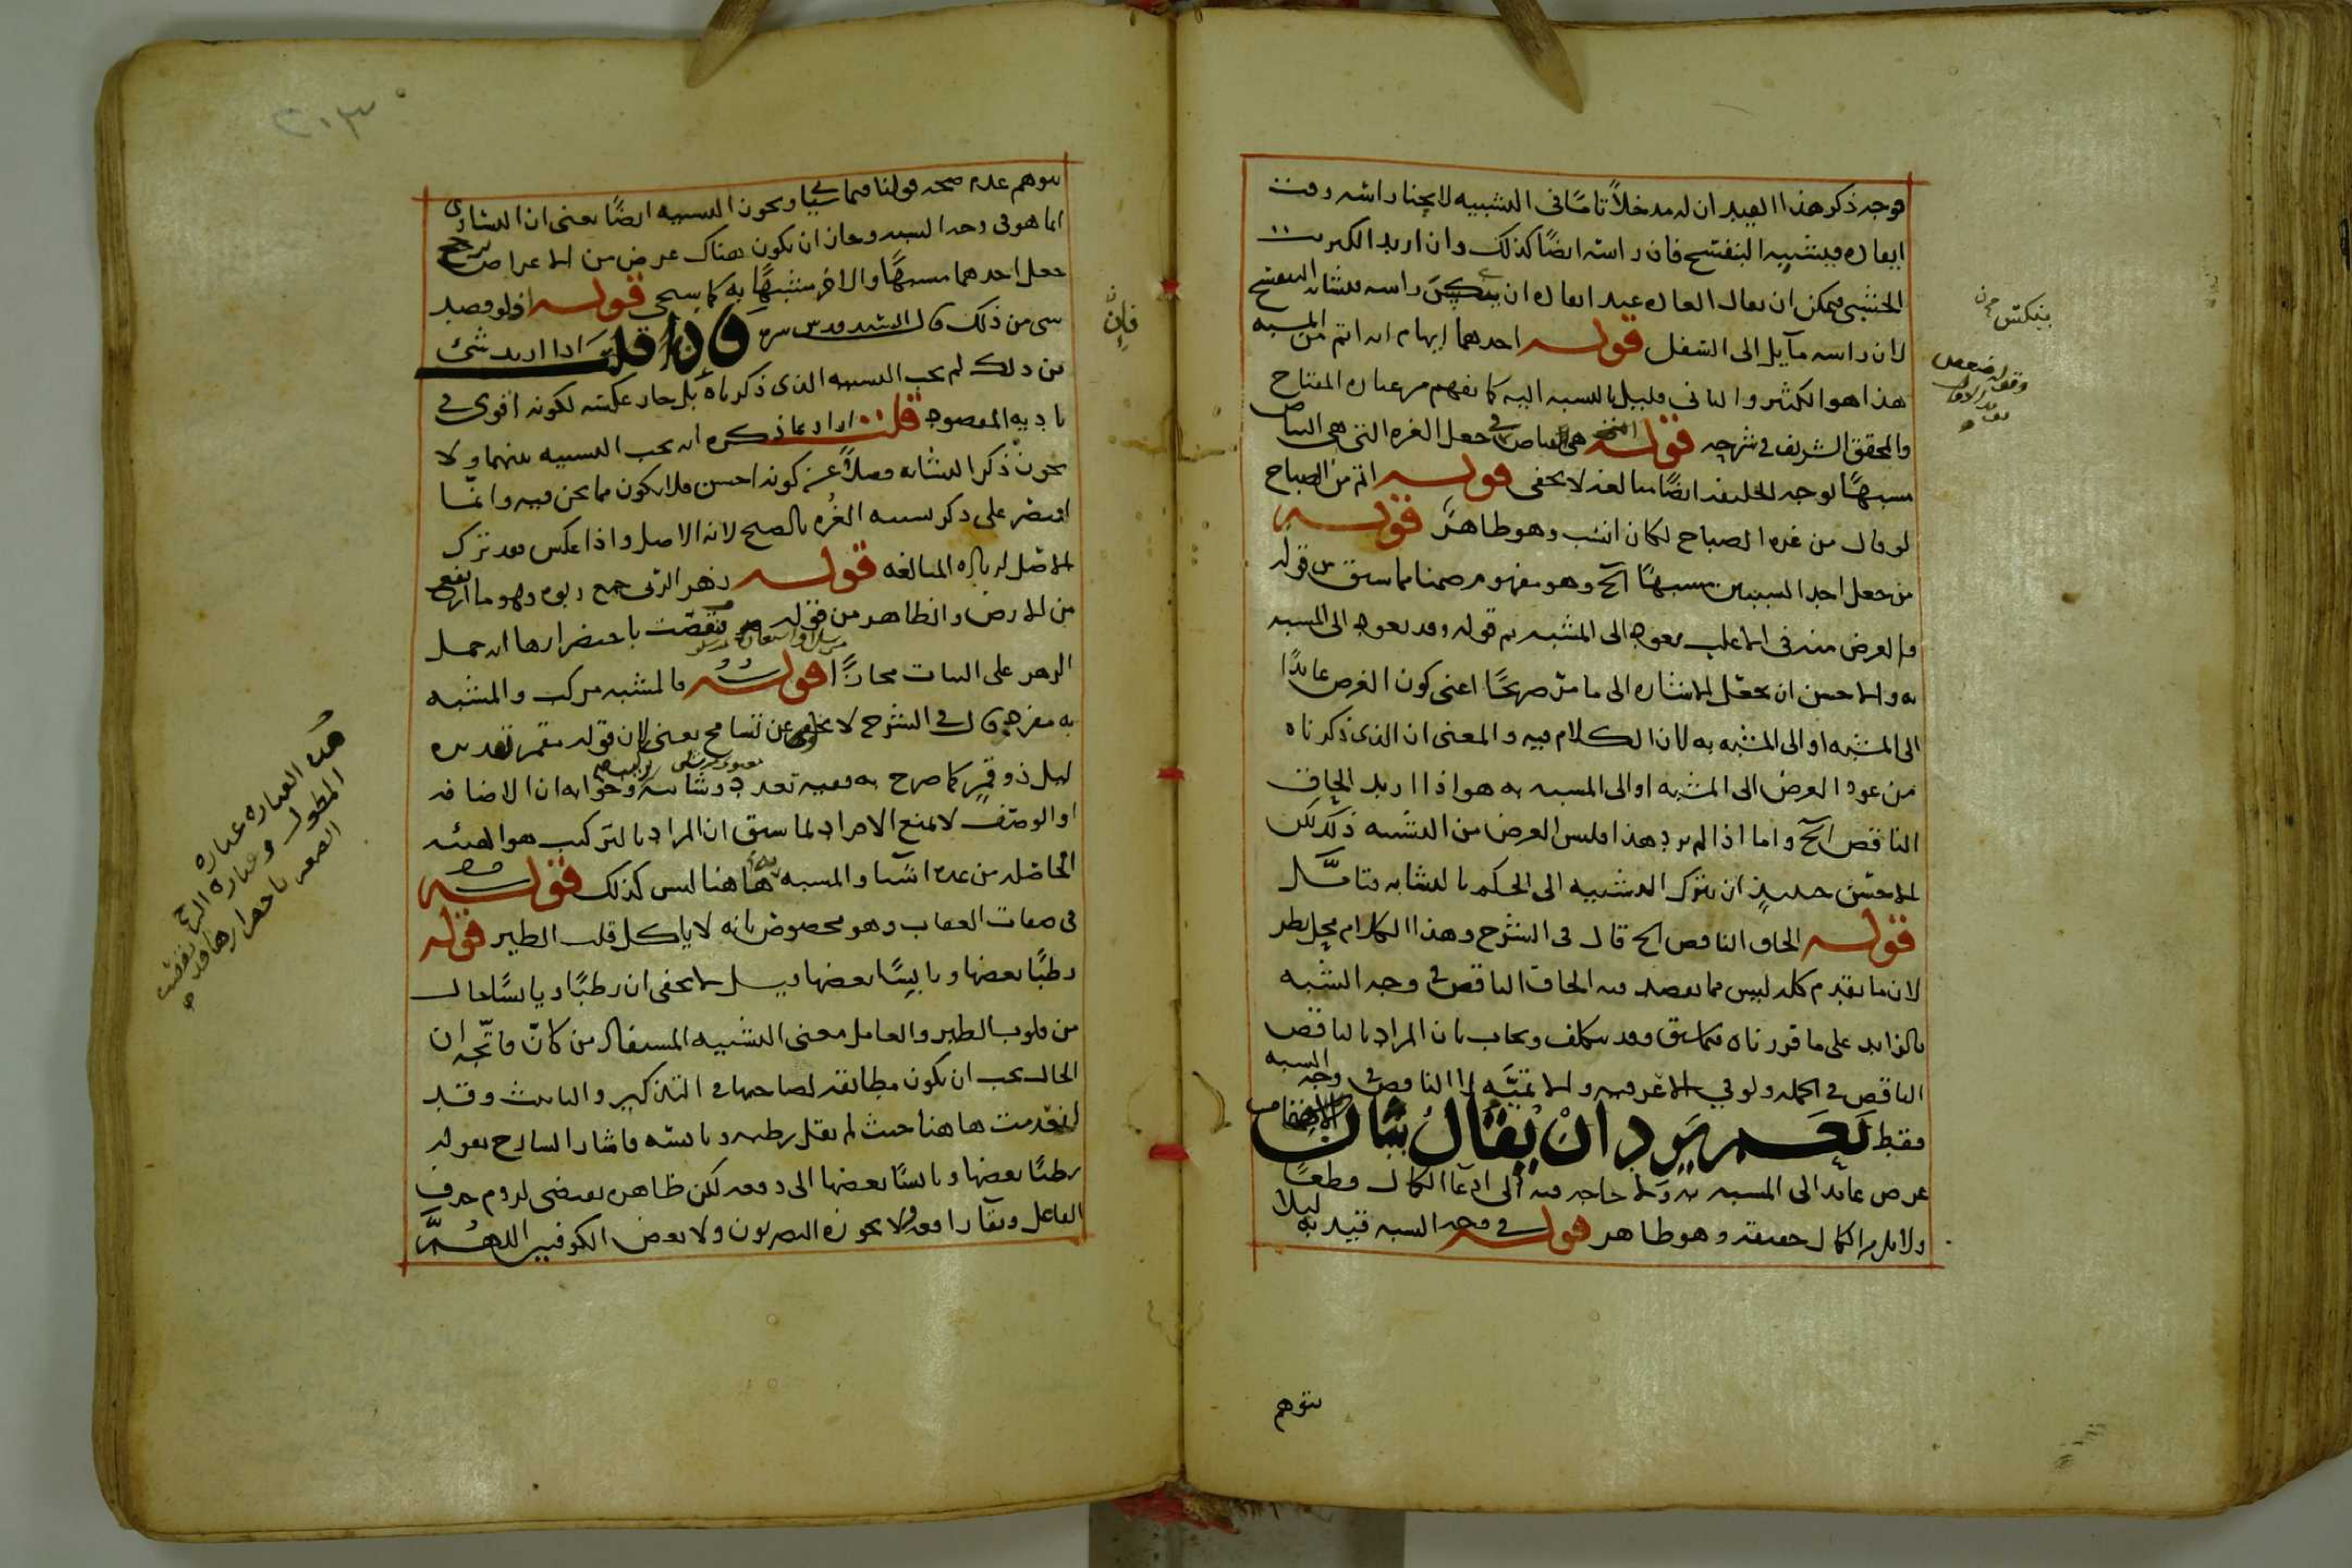 فوجه ذكر هذا القيد ان له مدخلا تاما فى التشبيه لا يجنا راسه وقت
ايقاده فيشبه البنفسج فان راسه ايضا كذلك وان اريد الكبريت
الخشبى فيمكن ان يقال العاده عند ايقاده ان ينكس راسه فيشابه البنفسج
لان راسه مايل الى السفل قوله احدهما ايهام انه اتم من المشبه
هذا هو الكثير والثانى قليل بالنسبه اليه كما يفهم من عباره المفتاح
والمحقق الشريف فى شرحه قوله هى البياض فى جعل الغره التى هى البياض
مشبها لوجه الخليفه ايضا مبالغه لا يخفى قوله اتم من الصباح
لو قال من غره الصباح لكان انسب وهو ظاهر قوله
من جعل احد الشيئين مشبها الخ وهو مفهوم ضمنا مما سبق من قوله
والغرض منه فى الاغلب يعود الى المشبه ثم قوله وقد يعود الى المشبه
به والاحسن ان يجعل الاشاره الى ما مر صريحا اعنى كون الغرض عايدا
الى المشبه او الى المشبه به لان الكلام فيه والمعنى ان الذى ذكرناه
من عود الغرض الى المشبه او الى المشبه به هو اذا اريد الحاق
الناقص الخ واما اذا لم يرد هذا فليس الغرض من التشبيه ذلك لكن
الاحسن حينيذ ان يترك التشبيه الى الحكم بالتشابه فتامل
قوله الحاق الناقص الخ قال فى الشرح وهذا الكلام محل نظر
لان ما تقدم كله ليس مما يقصد فيه الحاق الناقص فى وجه الشبه
بالزايد على ما قررناه فيما سبق وقد يتكلف ويجاب بان المراد بالناقص
الناقص فى الجمله ولو فى الاعرفيه والاتميه لا الناقص فى وجه الشبه
فقط نعم يرد ان يقال بيان الاهتمام
غرض عايد الى المشبه به ولا حاجه فيه الى ادعا الكمال قطعا
ولا يلزم الكمال حقيقه وهو ظاهر قوله فى وجه الشبه قيد به ليلا
يتوهم
ينكس
يتوهم عدم صحه قولنا فيما سياتى ويجوز التشبيه ايضا يعنى ان التساوى
انما هو فى وجه الشبه وجاز ان يكون هناك غرض من الاغراض يرجح
جعل احدهما مشبها والاخر مشبها به كما سيجى قوله اذ لو قصد
شى من ذلك قال السيد قدس سره فان قلت اذا اريد شئ
من ذلك لم يجب التشبيه الذى ذكرناه بل جاز عكسه لكونه اقوى فى
تاديه المقصود قلت اراد بما ذكره انه يجب التشبيه بينهما ولا
يجوز ذكر التشابه فضلا عن كونه احسن فلا يكون مما نحن فيه وانما
اقتصر على ذكر تشبيه الغره بالصبح لانه الاصل واذا عكس فقد ترك
الاصل لزياده المبالغه قوله زهر الربى جمع ربوه وهو ما ارتفع
من الارض والظاهر من قوله فنقصت باخضرارها انه حمل
الزهر على النبات مجازا قوله فالمشبه مركب والمشبه
به مفرد قال فى الشرح لا يخلو عن تسامح يعنى لان قوله مقمر تقديره
ليل ذو قمر كما صرح به ففيه تعدد وشايبه وجوابه ان الاضافه
او الوصف لا يمنع الافراد لما سبق ان المراد بالتركيب هو الهيئه
الحاصله من عده اشيا والمشبه به هاهنا ليس كذلك قوله
فى صفات العقاب وهو مخصوص بانه لا ياكل قلب الطير قوله
رطبا بعضها ويابسا بعضها قيل لا يخفى ان رطبا ويابسا حال
من قلوب الطير والعامل معنى التشبيه المستفاد من كان فاتجه ان
الحال يجب ان يكون مطابقه لصاحبها فى التذكير والتانيث وقد
انعدمت هاهنا حيث لم يقل رطبه ويابسه فاشار الشارح بقوله
رطبا بعضها ويابسا بعضها الى دفعه لكن ظاهره يقتضى لزوم حذف
الفاعل وبقا رافعه ولا يجوزه البصريون ولا بعض الكوفيين اللهم
فان
هذه العباره عباره
المطول وعباره
باحمرارها
٢٠٣